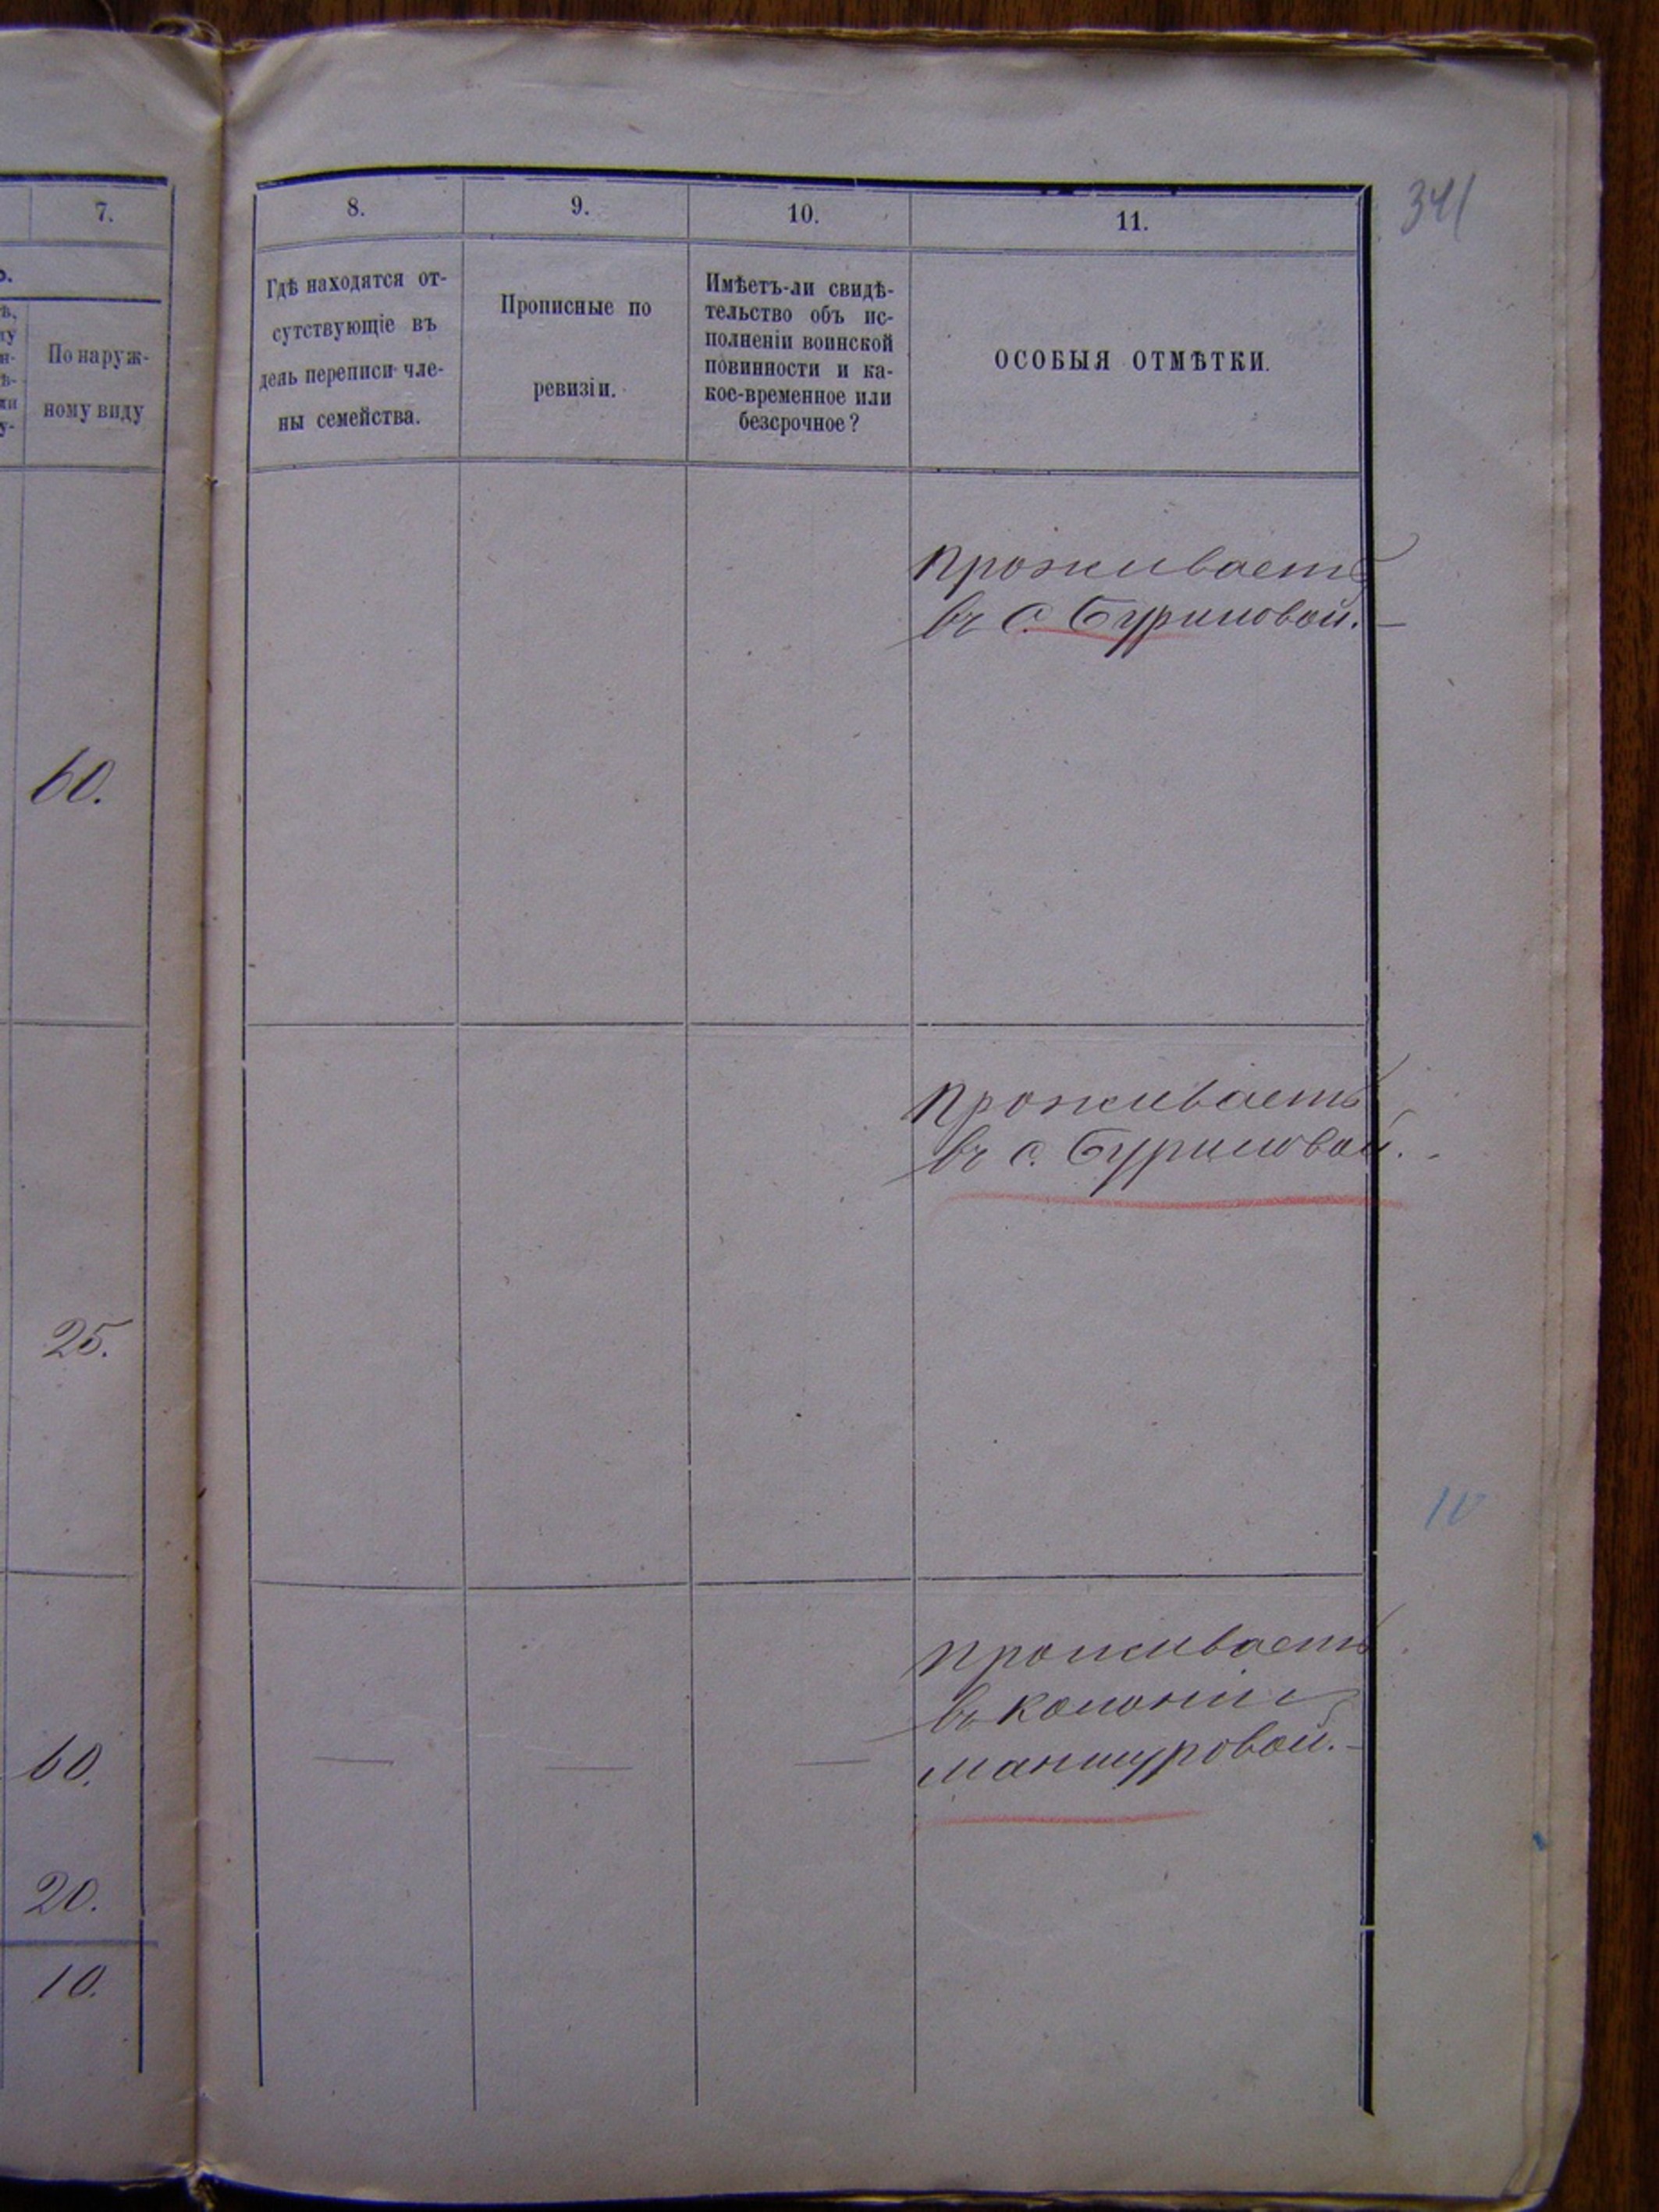 341
7.
8.
9.
10.
11.
По наруж-
ному виду
Гдѣ находятся от-
сутствующіе въ
день переписи чле-
ны семейства.
Прописные по
ревизіи.
Имѣетъ-ли свидѣ-
тельство объ ис-
полненіи воинской
повинности и ка-
кое-временное или
безсрочное?
ОСОБЫЯ ОТМѢТКИ.
проживаетъ
въ С. Буриловой.
60.
проживаетъ
въ с. Буриловой.
25.
проживаетъ
въ колоніи
маншуровой.
60.
20.
10.